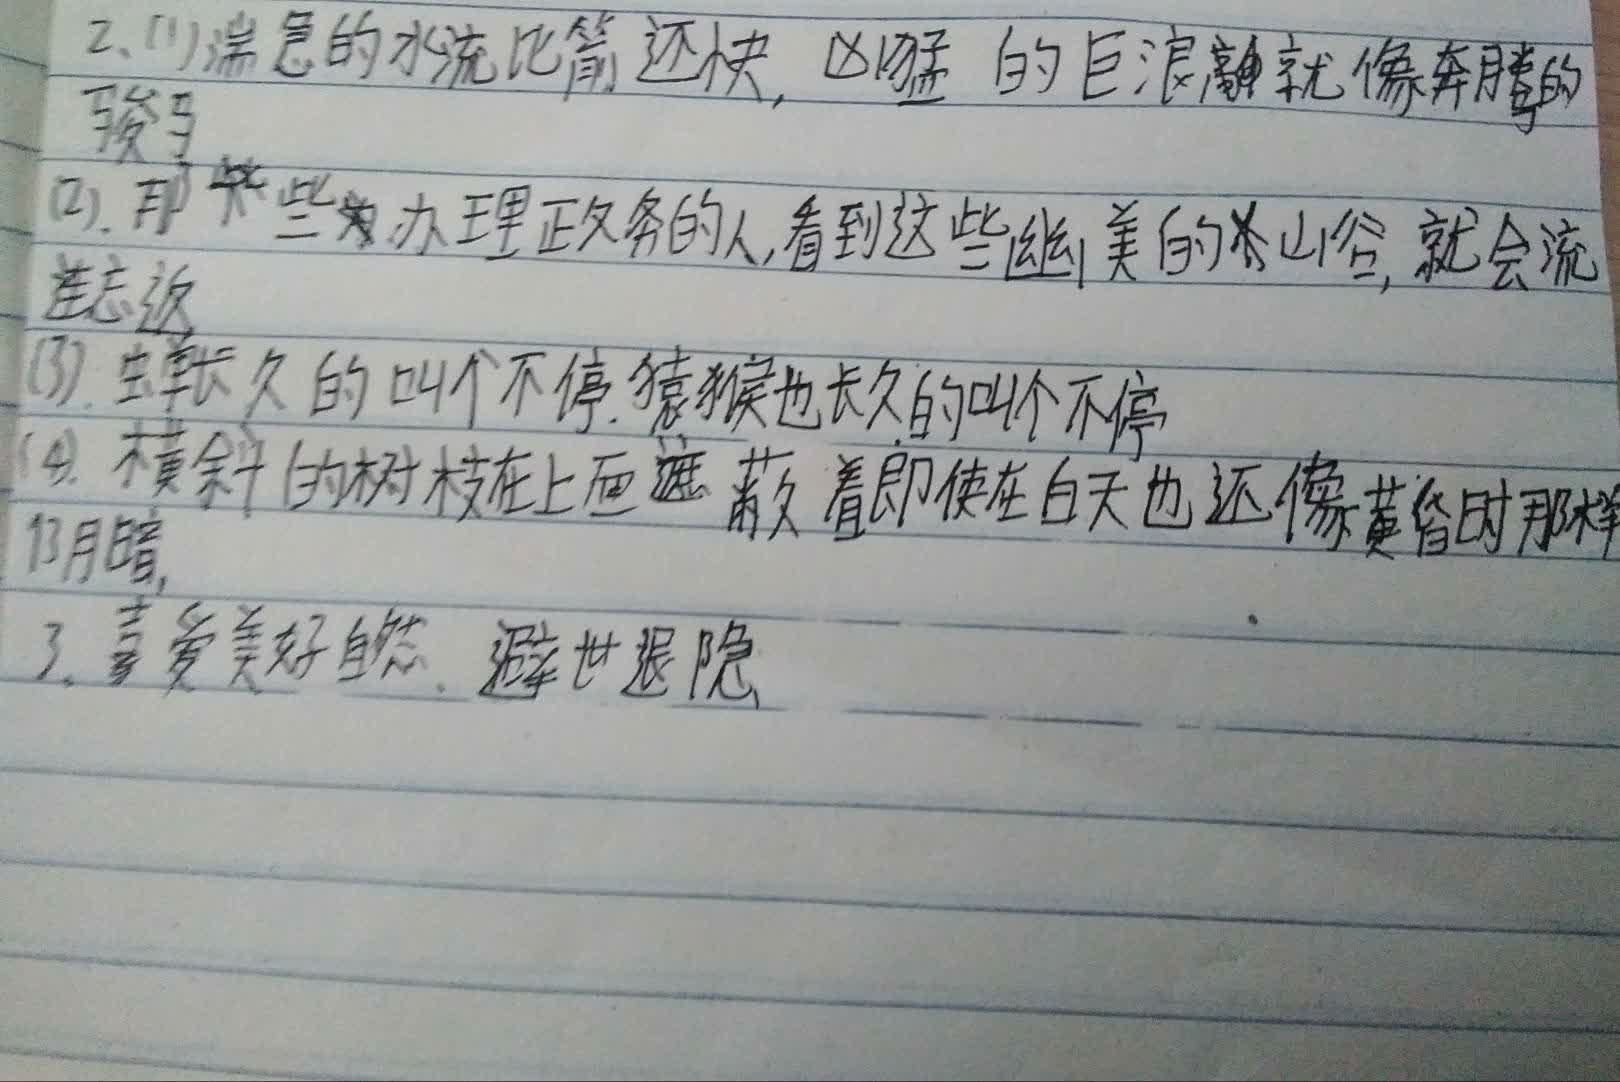 2、(1)湍急的水流比箭还快,凶猛的巨浪就像奔腾的
骏马
(2).那些办理政务的人,看到这些幽美的山谷,就会流
连忘返
(3).蝉长久的叫个不停.猿猴也长久的叫个不停
(4).横斜的树枝在上面遮蔽着即使在白天也还像黄昏时那样
阴暗,
3、喜爱美好自然、避世退隐